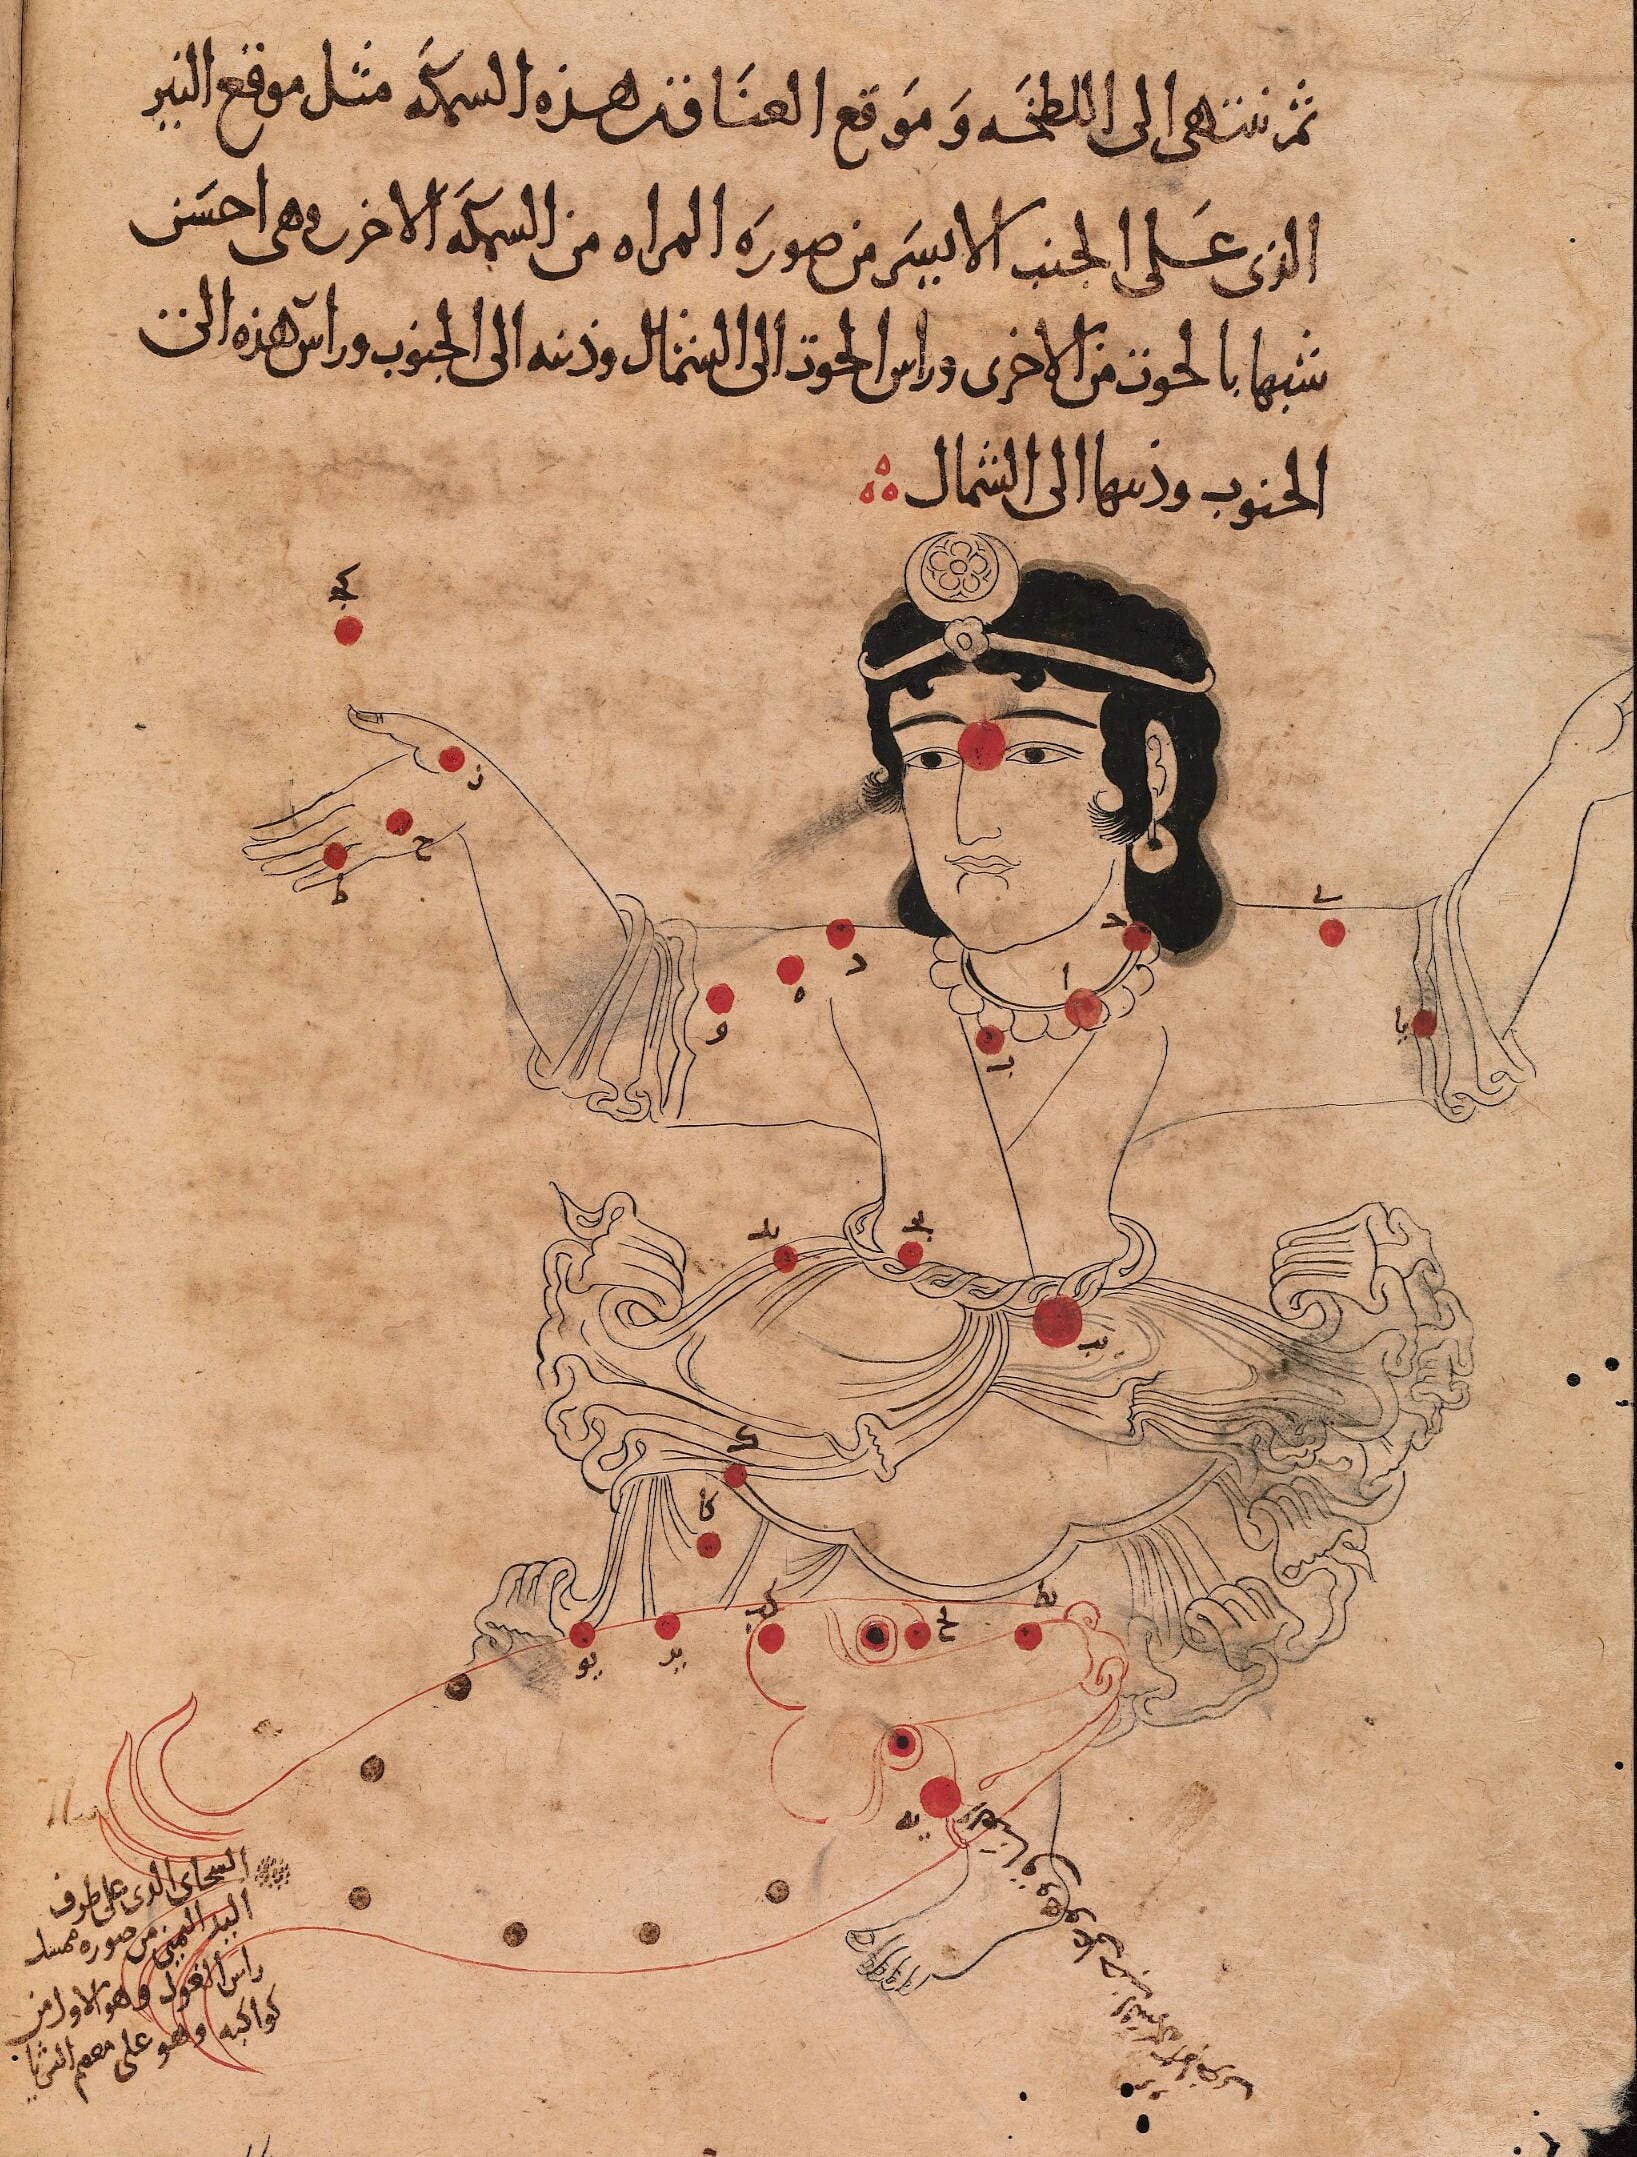 ثم تنتهى الى اللطخه وموقع العناق من هذه السمكه مثل موقع النير
الذى على الجنب الايسر من صوره المراه من السمكه الاخرى وهى احسن
شبها بالحوت من الاخرى وراس الحوت الى الشمال وذنبه الى الجنوب وراس هذه الى
الجنوب وذنبها الى الشمال
كج
ز
ح
ط
د
ه
و
ج
ا
ٮا
ى
يا
يد
يج
يب
ك
كا
كب
يح
يط
يو
يز
يه
السحابى الذى على طرف
اليد اليمنى من صوره ممسك
راس الغول وهو الاول من
كواكبه وهو على معصم الثريا